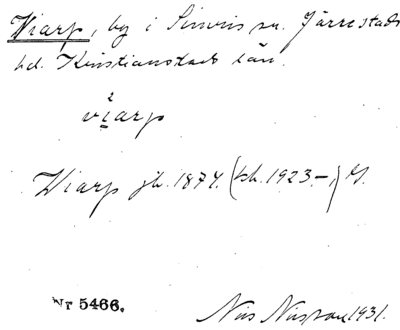 Wiarp, by i Simris sn. Järrestads
hd. Kristianstads län.
2
viarp
Wiarp jb. 1874. (sk. 1923.–)
Nr 5466.
Nils Nilsson 1931.